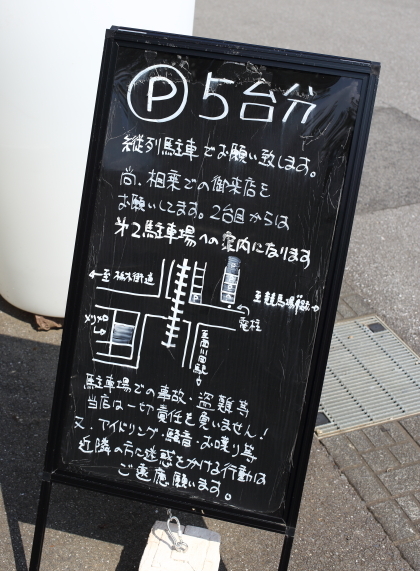 Ⓟ 5台分
縦列駐車でお願い致します。
尚、相乗での御来店を
お願いしてます。2台目からは
第2駐車場への案内になります
←至 栃木街道
至 競馬場
メリメロ
電柱
駐車場での事故・盗難等
当店は一切責任を負いません!
又、アイドリング・騒音・お喋り等
近隣の方に迷惑をかける行動は
ご遠慮願います。